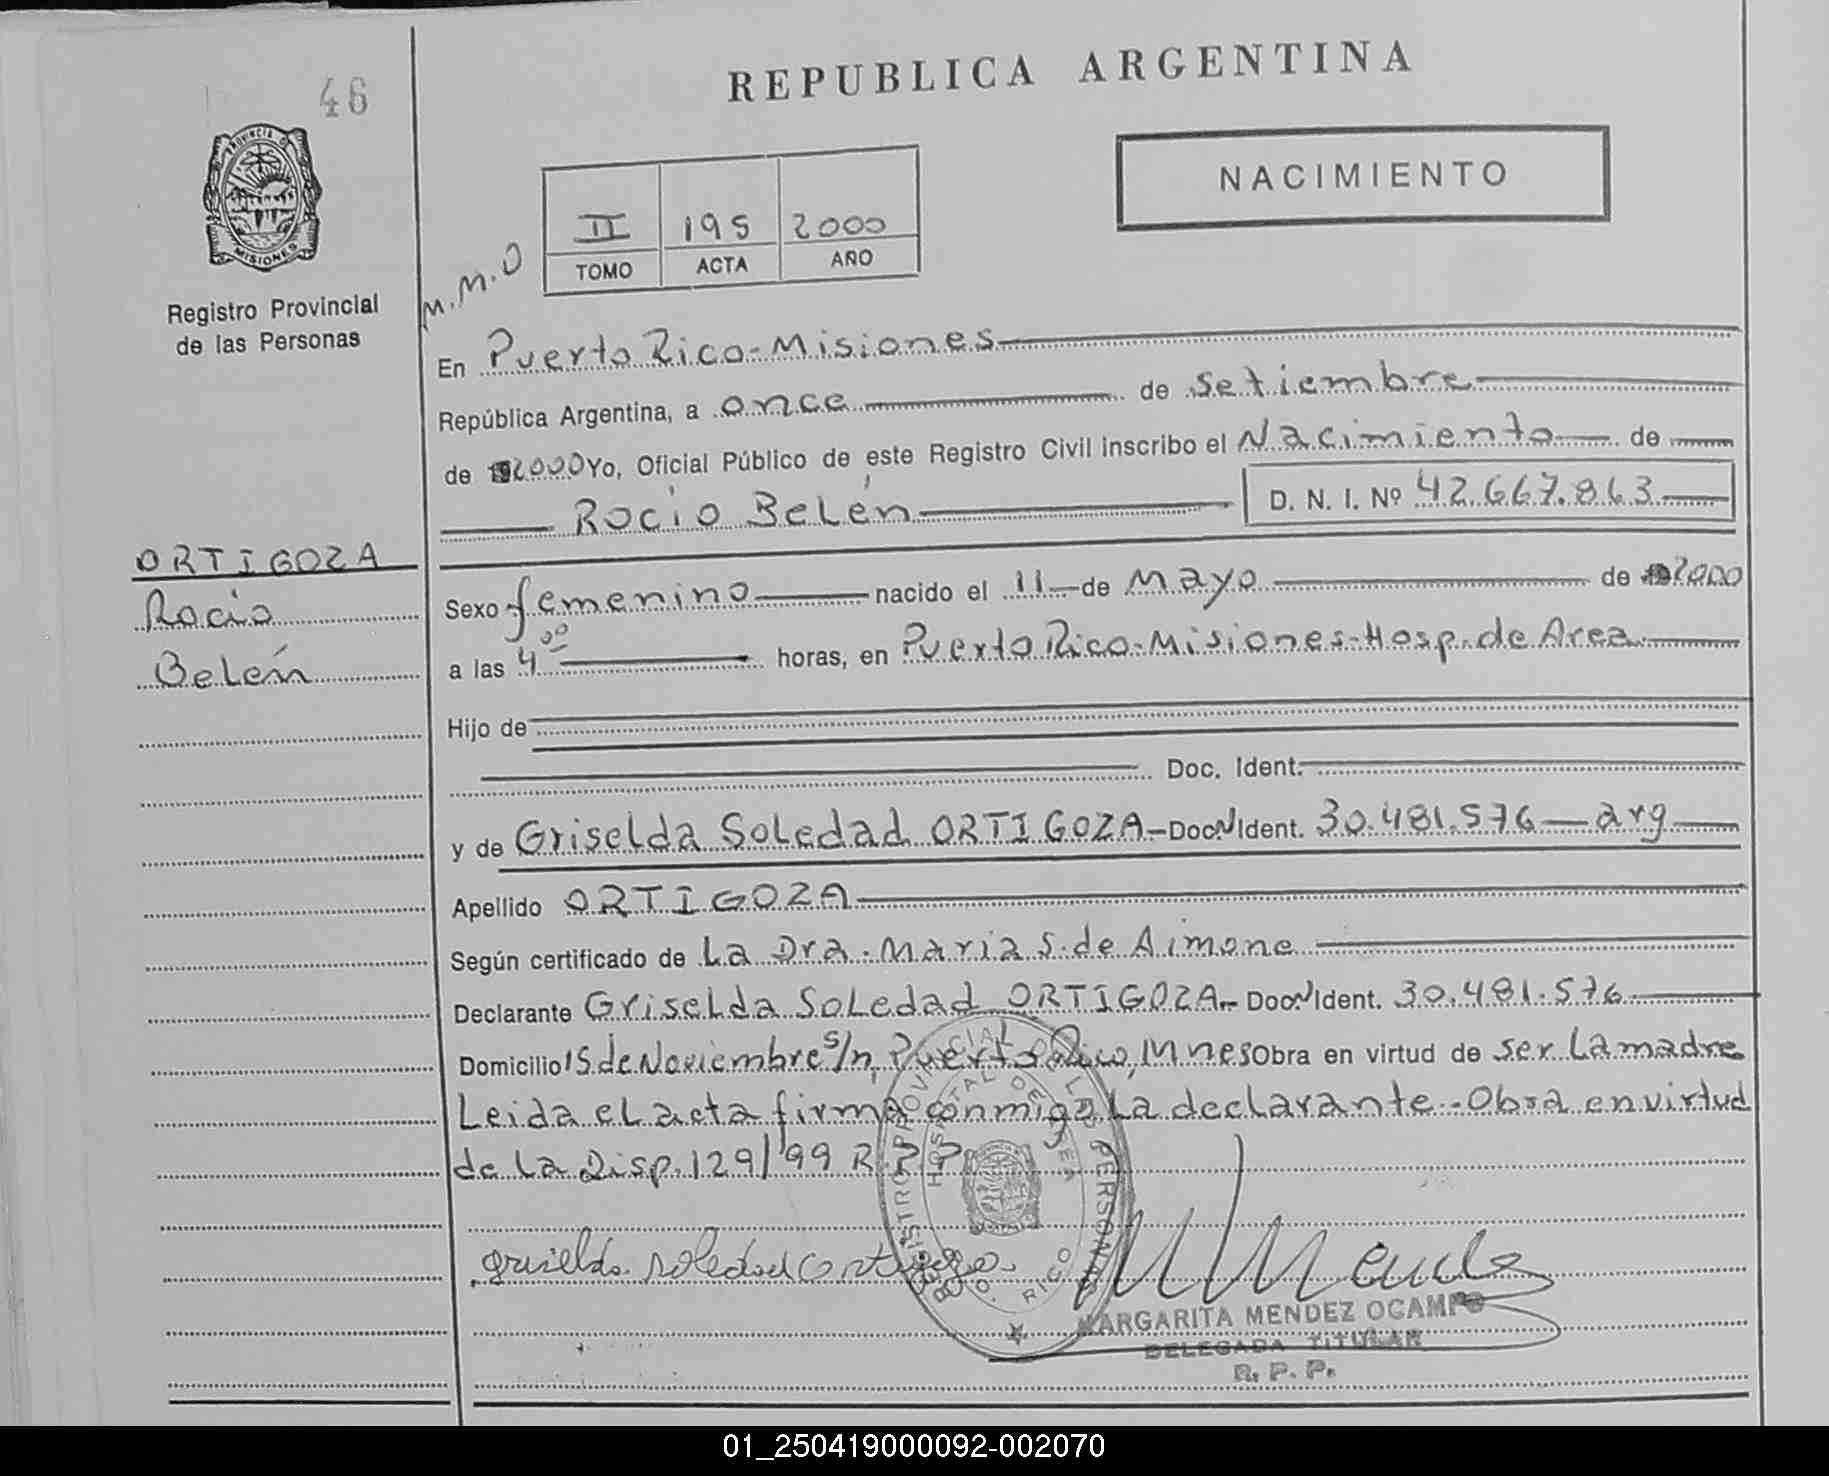 46
REPUBLICA ARGENTINA
NACIMIENTO
PROVINCIA DE MISIONES
Registro Provincial
de las Personas
II 195 2000
TOMO ACTA AÑO
M.M.O
En Puerto Rico-Misiones
República Argentina, a once de setiembre
de 2000 Yo, Oficial Público de este Registro Civil inscribo el Nacimiento de
Rocío Belén D. N. I. Nº 42.667.863
ORTIGOZA
Rocío
Belén
Sexo femenino nacido el 11 de Mayo de 2000
a las 4 00 horas, en Puerto Rico-Misiones-Hosp. de Area
Hijo de
Doc. Ident.
y de Griselda Soledad ORTIGOZA Doc. N Ident. 30.481.576 arg
Apellido ORTIGOZA
Según certificado de La Dra. Maria S. de Aimone
Declarante Griselda Soledad ORTIGOZA Doc. N Ident. 30.481.576
Domicilio 15 de Noviembre s/n, Puerto Rico, Mnes Obra en virtud de ser La madre
Leida el acta firma conmigo La declarante-Obra en virtud
de La Disp. 129/99 R.P.P.
REGISTRO PROVINCIAL DE LAS PERSONAS
HOSPITAL DE AREA
PTO. RICO
Griselda Soledad Ortigoza
M Mendez
MARGARITA MENDEZ OCAMPO
DELEGADA TITULAR
R. P. P.
01_250419000092-002070